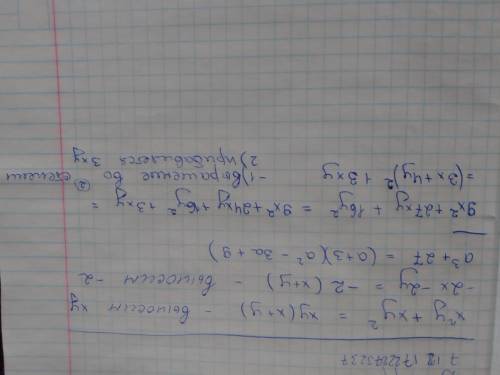 x²y + xy² = xy(x+y) - выносим xy
-2x-2y = -2(x+y) - выносим -2
a³+27 = (a+3)(a²-3a+9)
9x²+27xy + 16y² = 9x²+24xy+16y²+3xy =
=(3x+4y)²+3xy
-1) выражение во ② степени
2) прибавляется 3xy